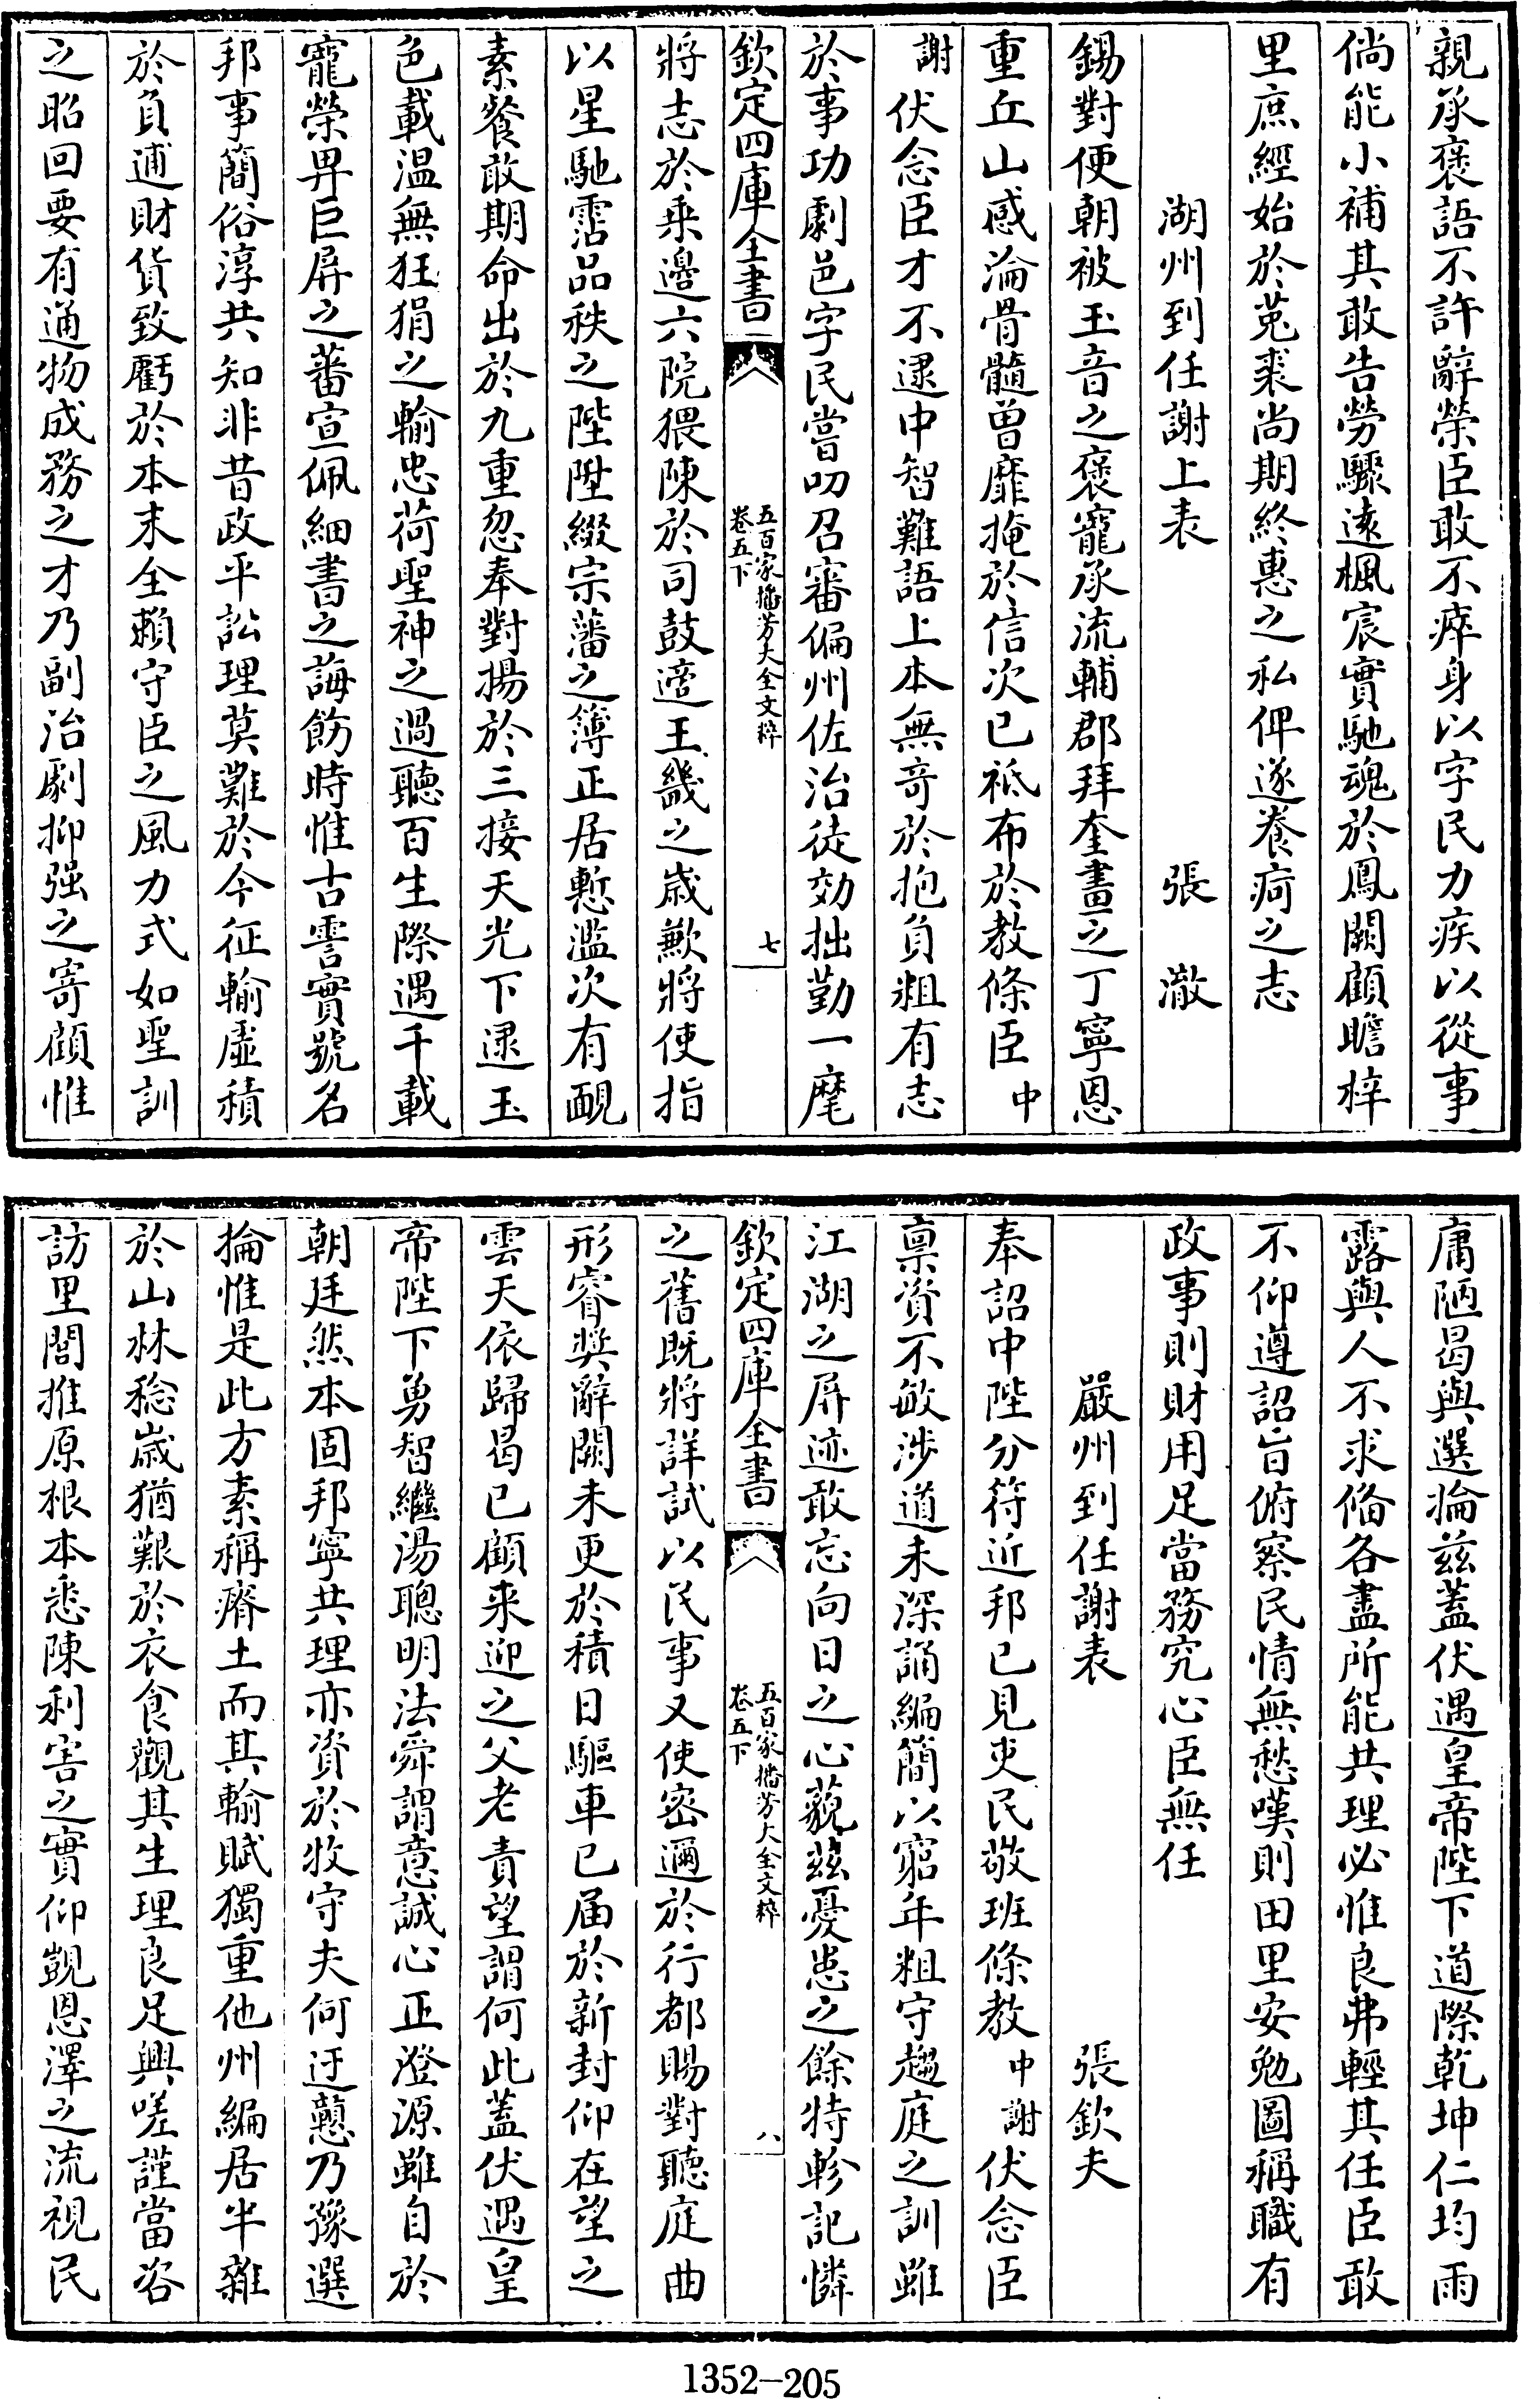 親承褒語不許辭榮臣敢不瘁身以字民力疾以從事
倘能小補其敢告勞驟遠楓宸實馳魂於鳳闕顧瞻梓
里庶經始於菟裘尚期終惠之私俾遂養疴之志
湖州到任謝上表　張澂
錫對便朝被玉音之褒寵承流輔郡拜奎畫之丁寧恩
重丘山感淪骨髓曾靡掩於信次已祗布於教條臣中
謝伏念臣才不逮中智難語上本無竒於抱負粗有志
於事功劇邑字民嘗叨召審偏州佐治徒効拙勤一麾
欽定四庫全書
五百家播芳大全文粹
卷五下
七
將志於乗邊六院猥陳於司鼓遊王畿之歳歉將使指
以星馳霑品秩之陛陞綴宗藩之簿正居慙濫次有靦
素餐敢期命出於九重忽奉對揚於三接天光下逮玉
色載温無狂狷之輸忠荷聖神之過聽百生際遇千載
寵榮畀巨屏之蕃宣佩細書之誨飭時惟古霅實號名
邦事簡俗淳共知非昔政平訟理莫難於今征輸虛積
於負逋財貨致虧於本末全賴守臣之風力式如聖訓
之昭回要有通物成務之才乃副治劇抑强之寄顧惟
庸陋曷與選掄兹蓋伏遇皇帝陛下道際乾坤仁均雨
露與人不求備各盡所能共理必惟良弗輕其任臣敢
不仰遵詔旨俯察民情無愁嘆則田里安勉圖稱職有
政事則財用足當務究心臣無任
嚴州到任謝表　張欽夫
奉詔中陛分符近邦已見吏民敬班條教中謝伏念臣
禀資不敏涉道未深誦編簡以窮年粗守趨庭之訓雖
江湖之屏迹敢忘向日之心藐兹憂患之餘特軫記憐
欽定四庫全書
五百家播芳大全文粹
卷五下
八
之舊既將詳試以民事又使密邇於行都賜對聽庭曲
形睿奬辭闕未更於積日驅車已届於新封仰在望之
雲天依歸曷已顧来迎之父老責望謂何此蓋伏遇皇
帝陛下勇智繼湯聰明法舜謂意誠心正澄源雖自於
朝廷然本固邦寧共理亦資於牧守夫何迂戇乃豫選
掄惟是此方素稱瘠土而其輸賦獨重他州編居半雜
於山林稔歲猶艱於衣食觀其生理良足興嗟謹當咨
訪里閭推原根本悉陳利害之實仰覬恩澤之流視民
1352-205